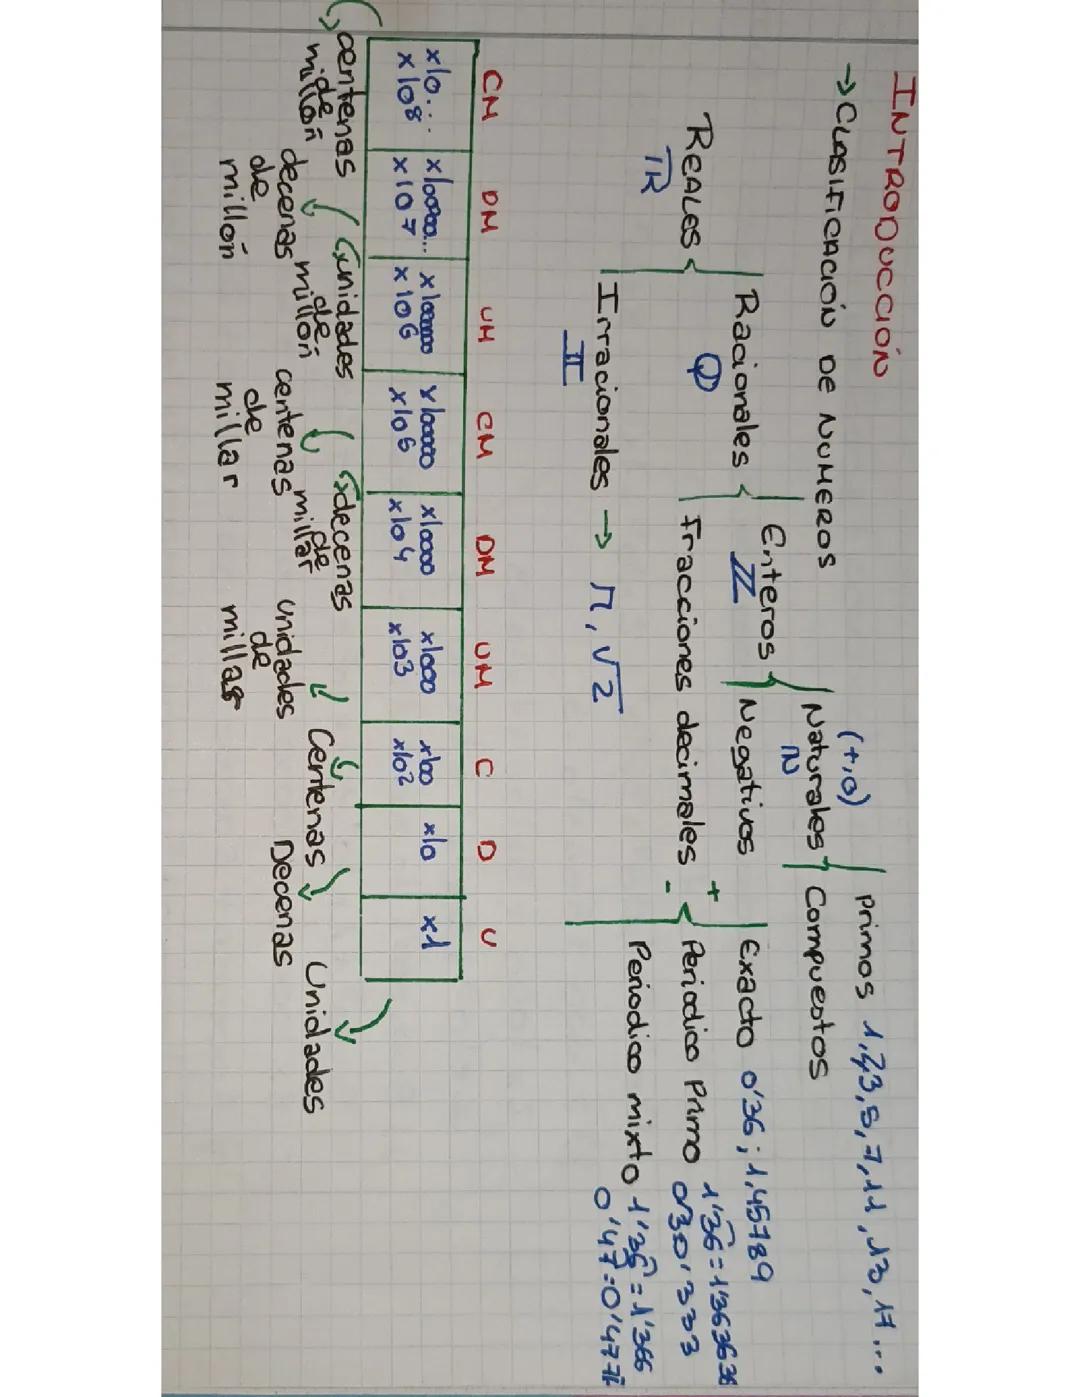 INTRODUCCIÓN
→ CLASIFICACIÓN DE NUMEROS
(+,0)
Primos 1,2,3,5,7,11,13,17...
Naturales
N
Compuestos
Enteros
Z
Negativos
Racionales
Q
Fracciones decimales + -
Exacto 0'36; 1,45789
Periodico Primo 1'36 = 1'363636
Periodico mixto 1'36 = 1'366
0'47=0'477
REALES
IR
Irracionales → π, √2
II
CM DM UM CM DM UM C D U
x10... x10000... x100000 x100000 x10000 x1000 x100 x10 x1
x108 x107 x106 x105 x104 x103 x102
centenas de millón
decenas de millón
unidades de millón
centenas de millar
decenas de millar
unidades de millar
Centenas
Decenas
Unidades